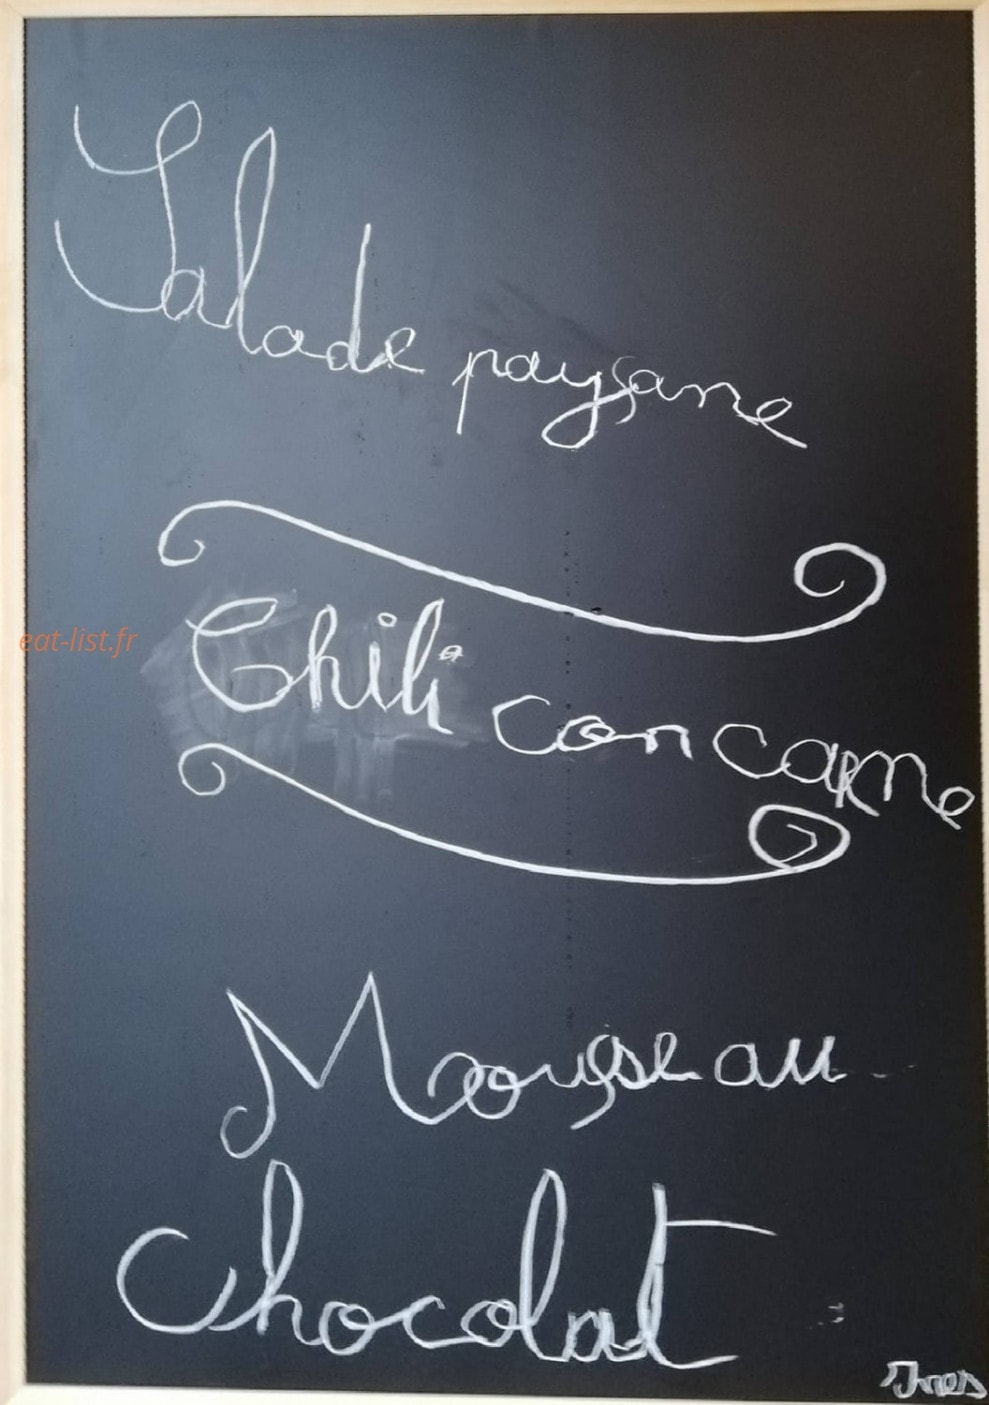 Salade paysane
eat-list.fr
Chili con carne
Mousse au
chocolat
Ines